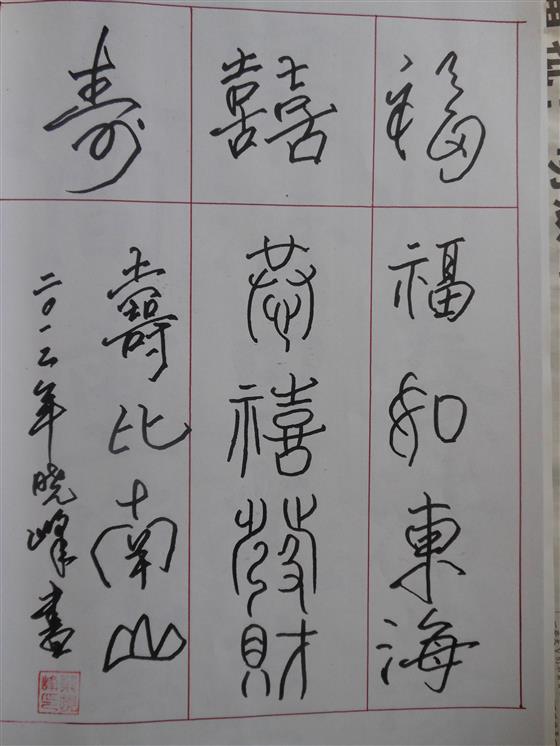 福
囍
寿
福如東海
恭禧發財
壽比南山
二〇一二年晓峰書